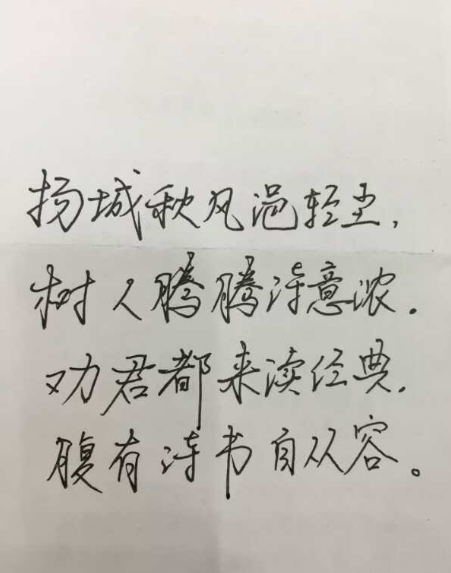 扬城秋风浥轻尘,
树人腾腾诗意浓.
劝君都来读经典.
腹有诗书自从容。